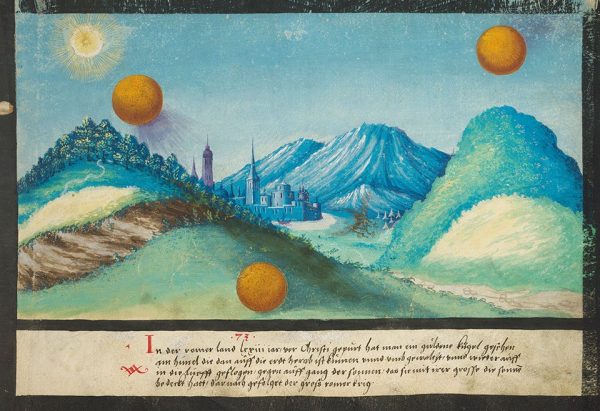 .73.
In der romer land lxxiii iar vor Christi gepurt hat man ein guldene kugel gesehen
am himel die dan auff die erdt herab ist kumen vnnd vmb gewalest vnnd wieder auff
in die lufft geflogen gegen auff gang der sonnen das sie mit irer grosse die sunn
bedeckt hatt darnach gefolget der groß romer krig